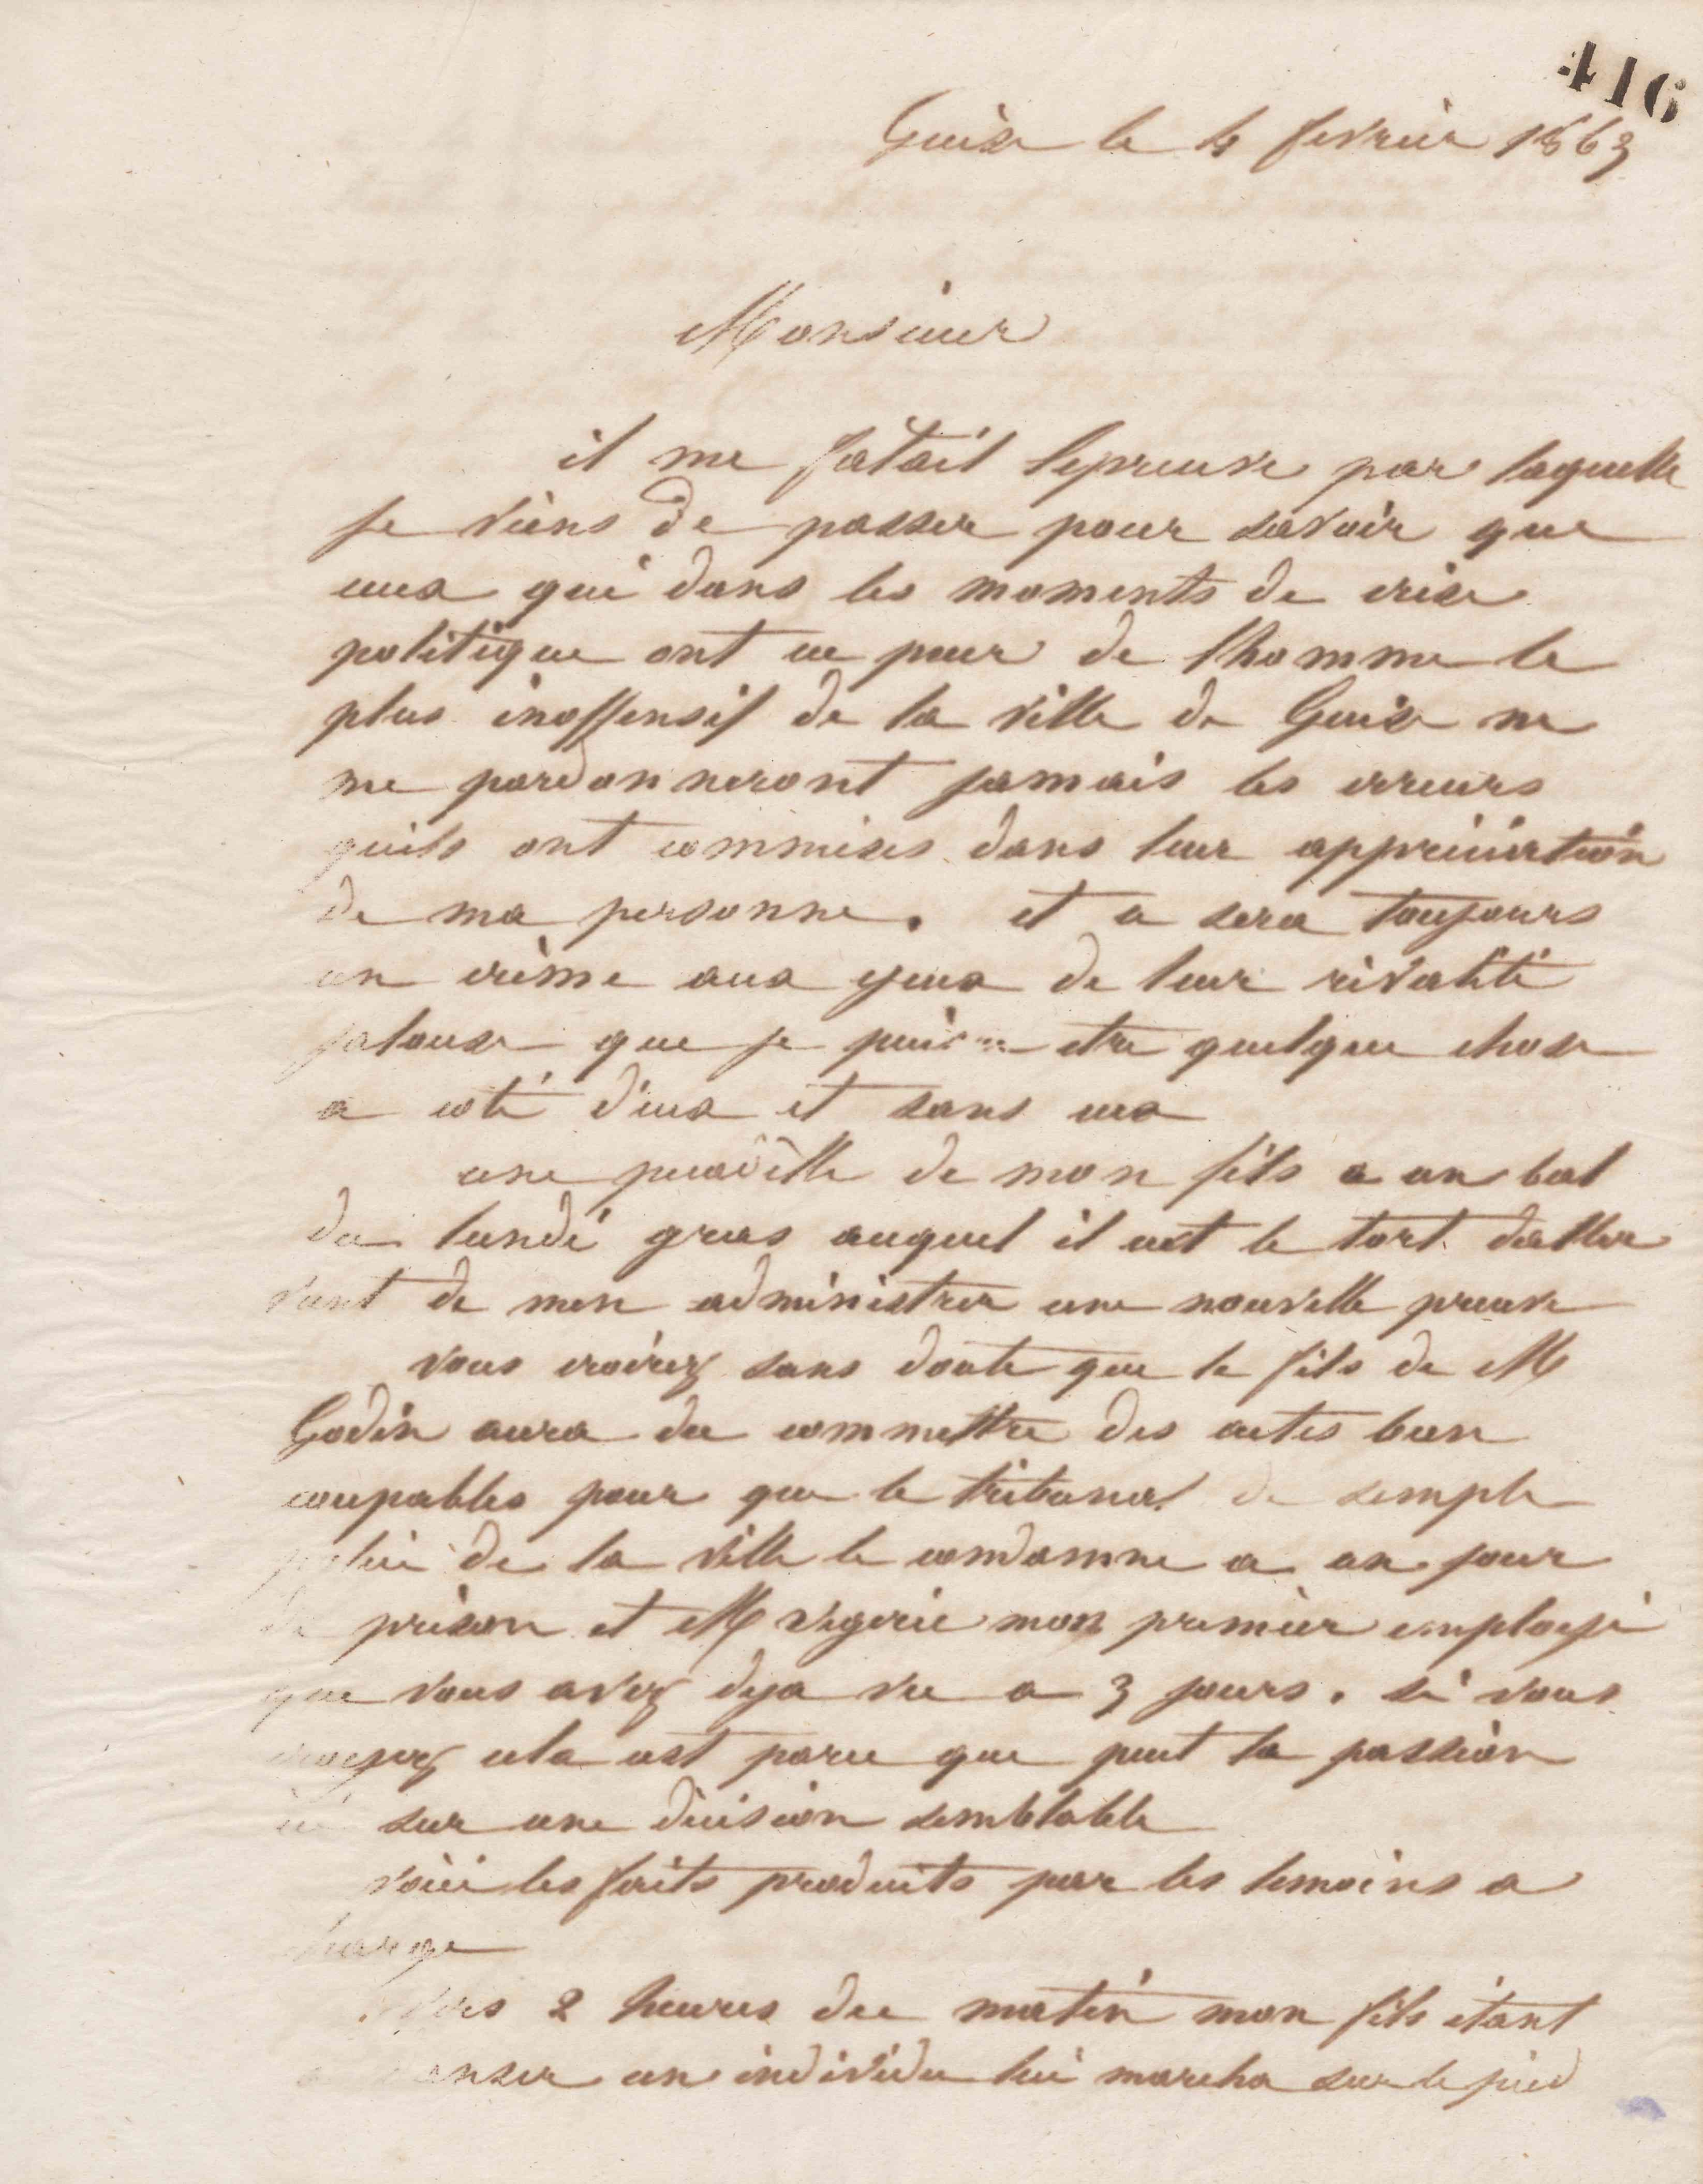 416
Guise le 4 fevrier 1863
Monsieur
il me falait lepreuve par laquelle
je viens de passer pour savoir que
ceux qui dans les moments de crise
politique ont eu peur de lhomme le
plus inoffensif de la ville de Guise ne
me pardonneront jamais les erreurs
quils ont commises dans leur appréciation
de ma personne. et ce sera toujours
un crime aux yeux de leur rivalité
jalouse que je puisse etre quelque chose
a coté d'eux et sans eux
une peccadille de mon fils a un bal
du lundi gras auquel il eut le tort daller
vient de men administrer une nouvelle preuve
vous croirez sans doute que le fils de M
Godin aura du commettre des actes bien
coupables pour que le tribunal de simple
police de la ville le condamne a un jour
de prison et M mon premier employé
que vous avez deja vu a 3 jours. si vous
croyez cela cest parce que peut la passion
ici sur une décision semblable
voici les faits produits par les temoins a
charge
Vers 2 heures du matin mon fils étant
a danser un individu lui marcha sur le pied